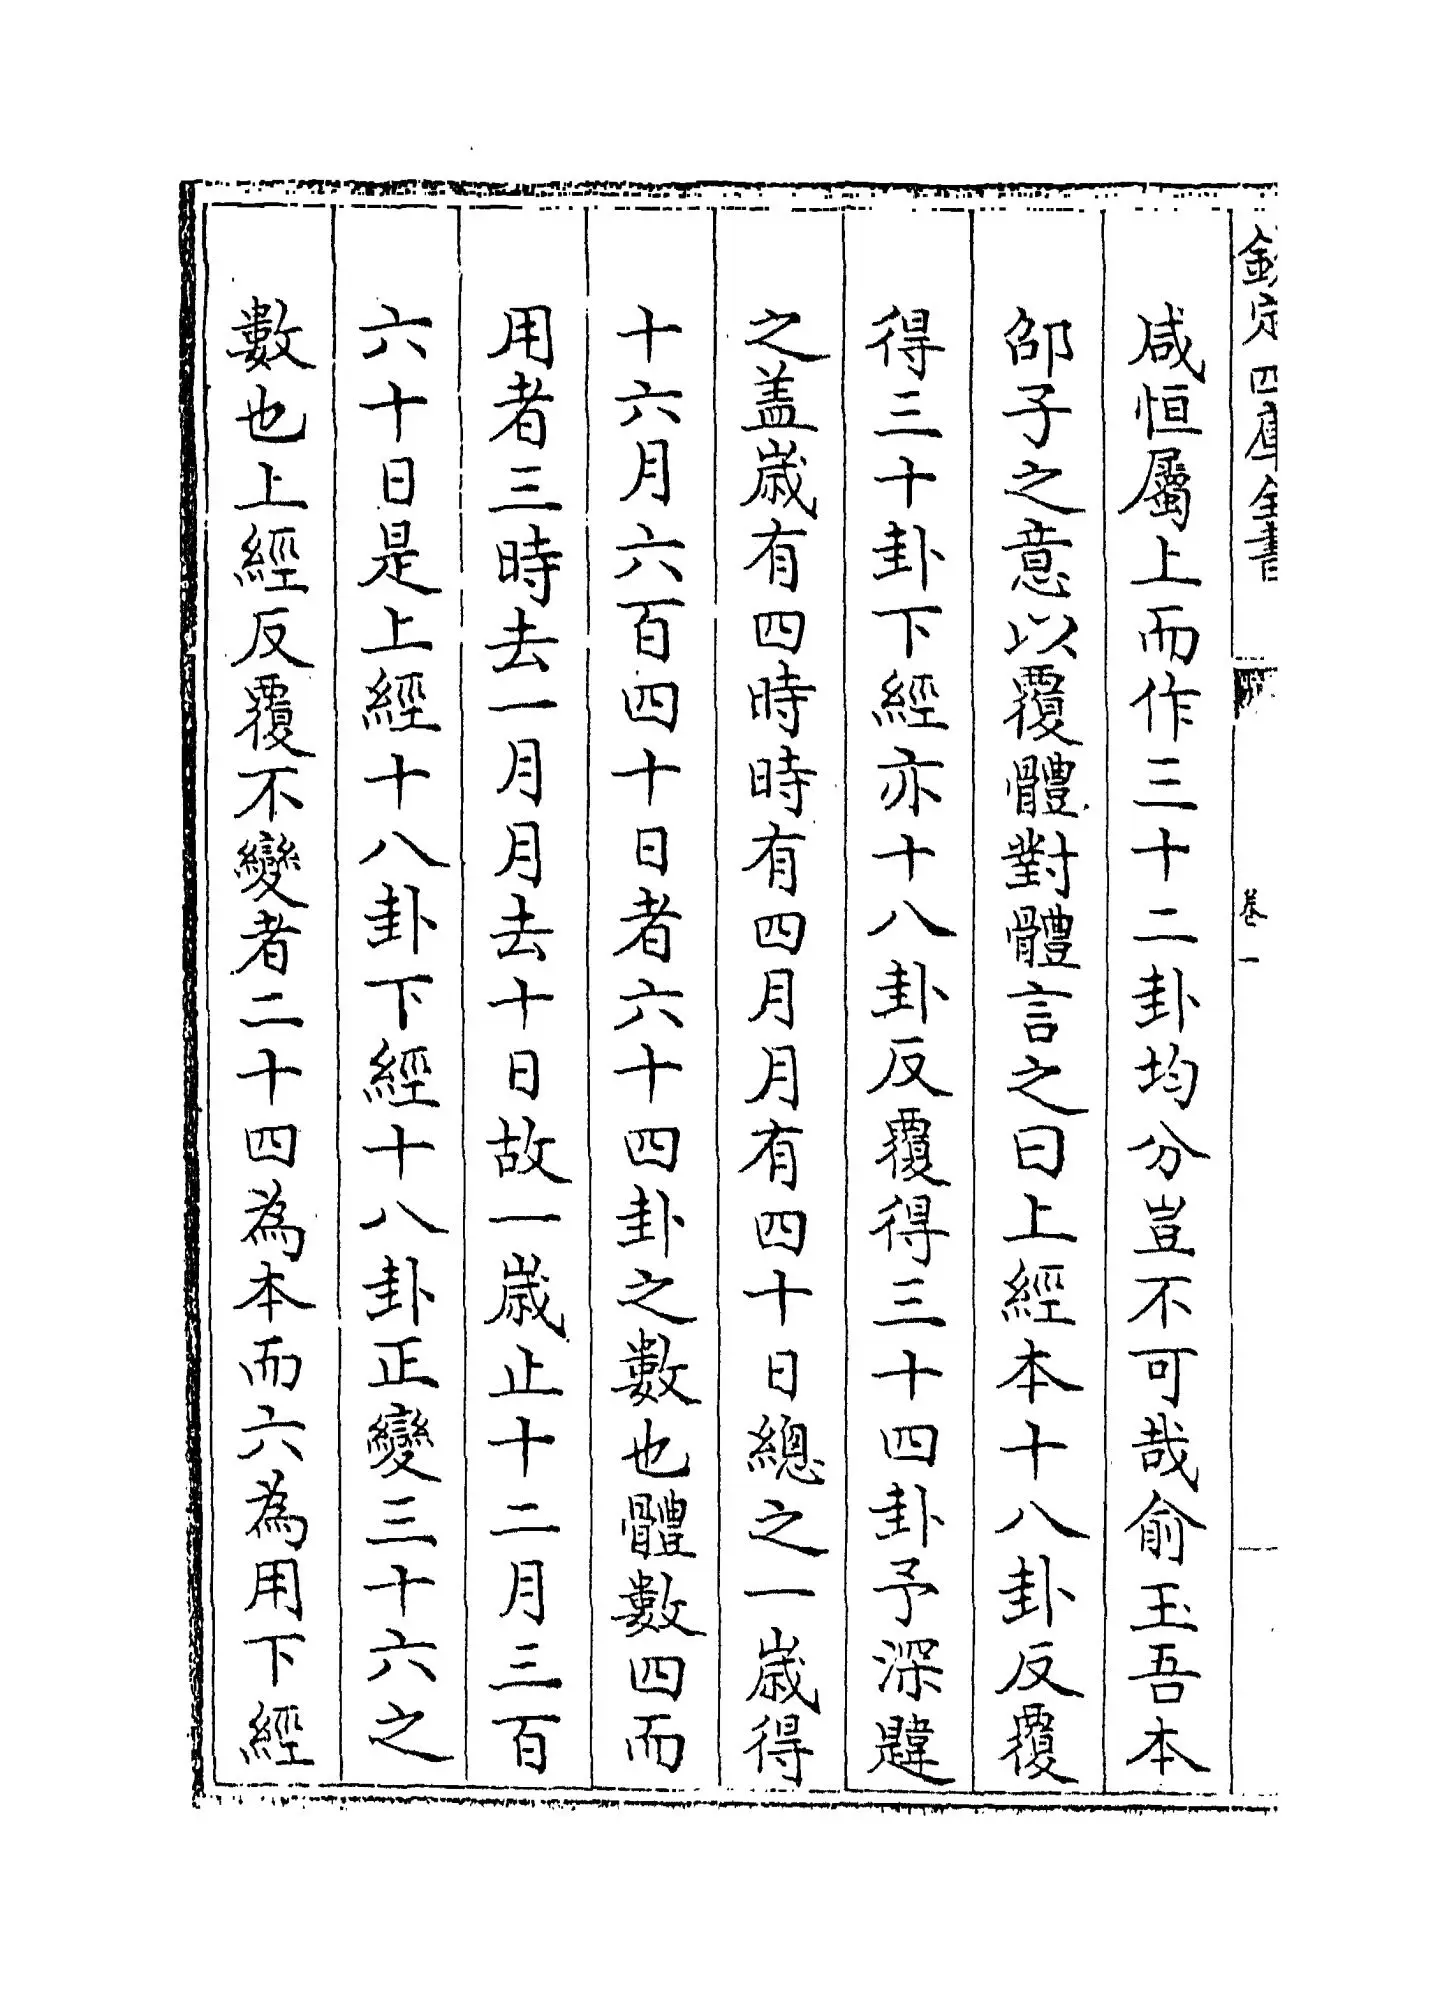 欽定四庫全書
卷一
咸恒屬上而作三十二卦均分豈不可哉俞玉吾本
邵子之意以覆體對體言之曰上經本十八卦反覆
得三十卦下經亦十八卦反覆得三十四卦予深韙
之盖歲有四時時有四月月有四十日總之一歲得
十六月六百四十日者六十四卦之數也體數四而
用者三時去一月月去十日故一歲止十二月三百
六十日是上經十八卦下經十八卦正變三十六之
數也上經反覆不變者二十四為本而六為用下經